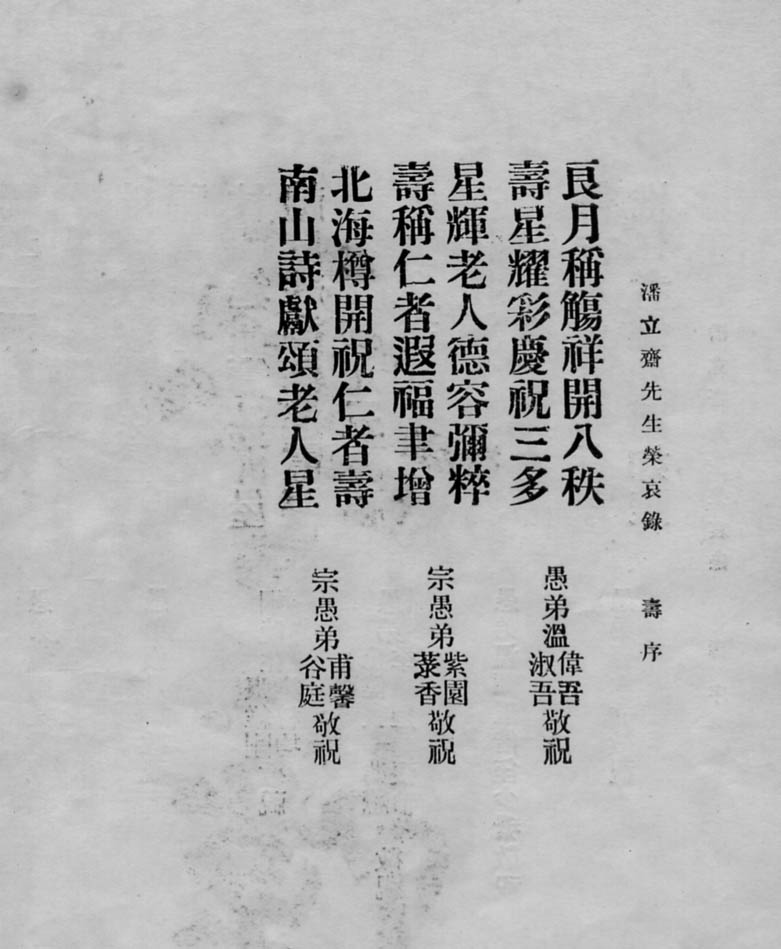 潘立齋先生榮哀錄　壽序
良月稱觴祥開八秩
壽星耀彩慶祝三多
愚弟溫偉吾淑吾敬祝
星輝老人德容彌粹
壽稱仁者遐福聿增
宗愚弟紫園菉香敬祝
北海樽開祝仁者壽
南山詩獻頌老人星
宗愚弟甫馨谷庭敬祝